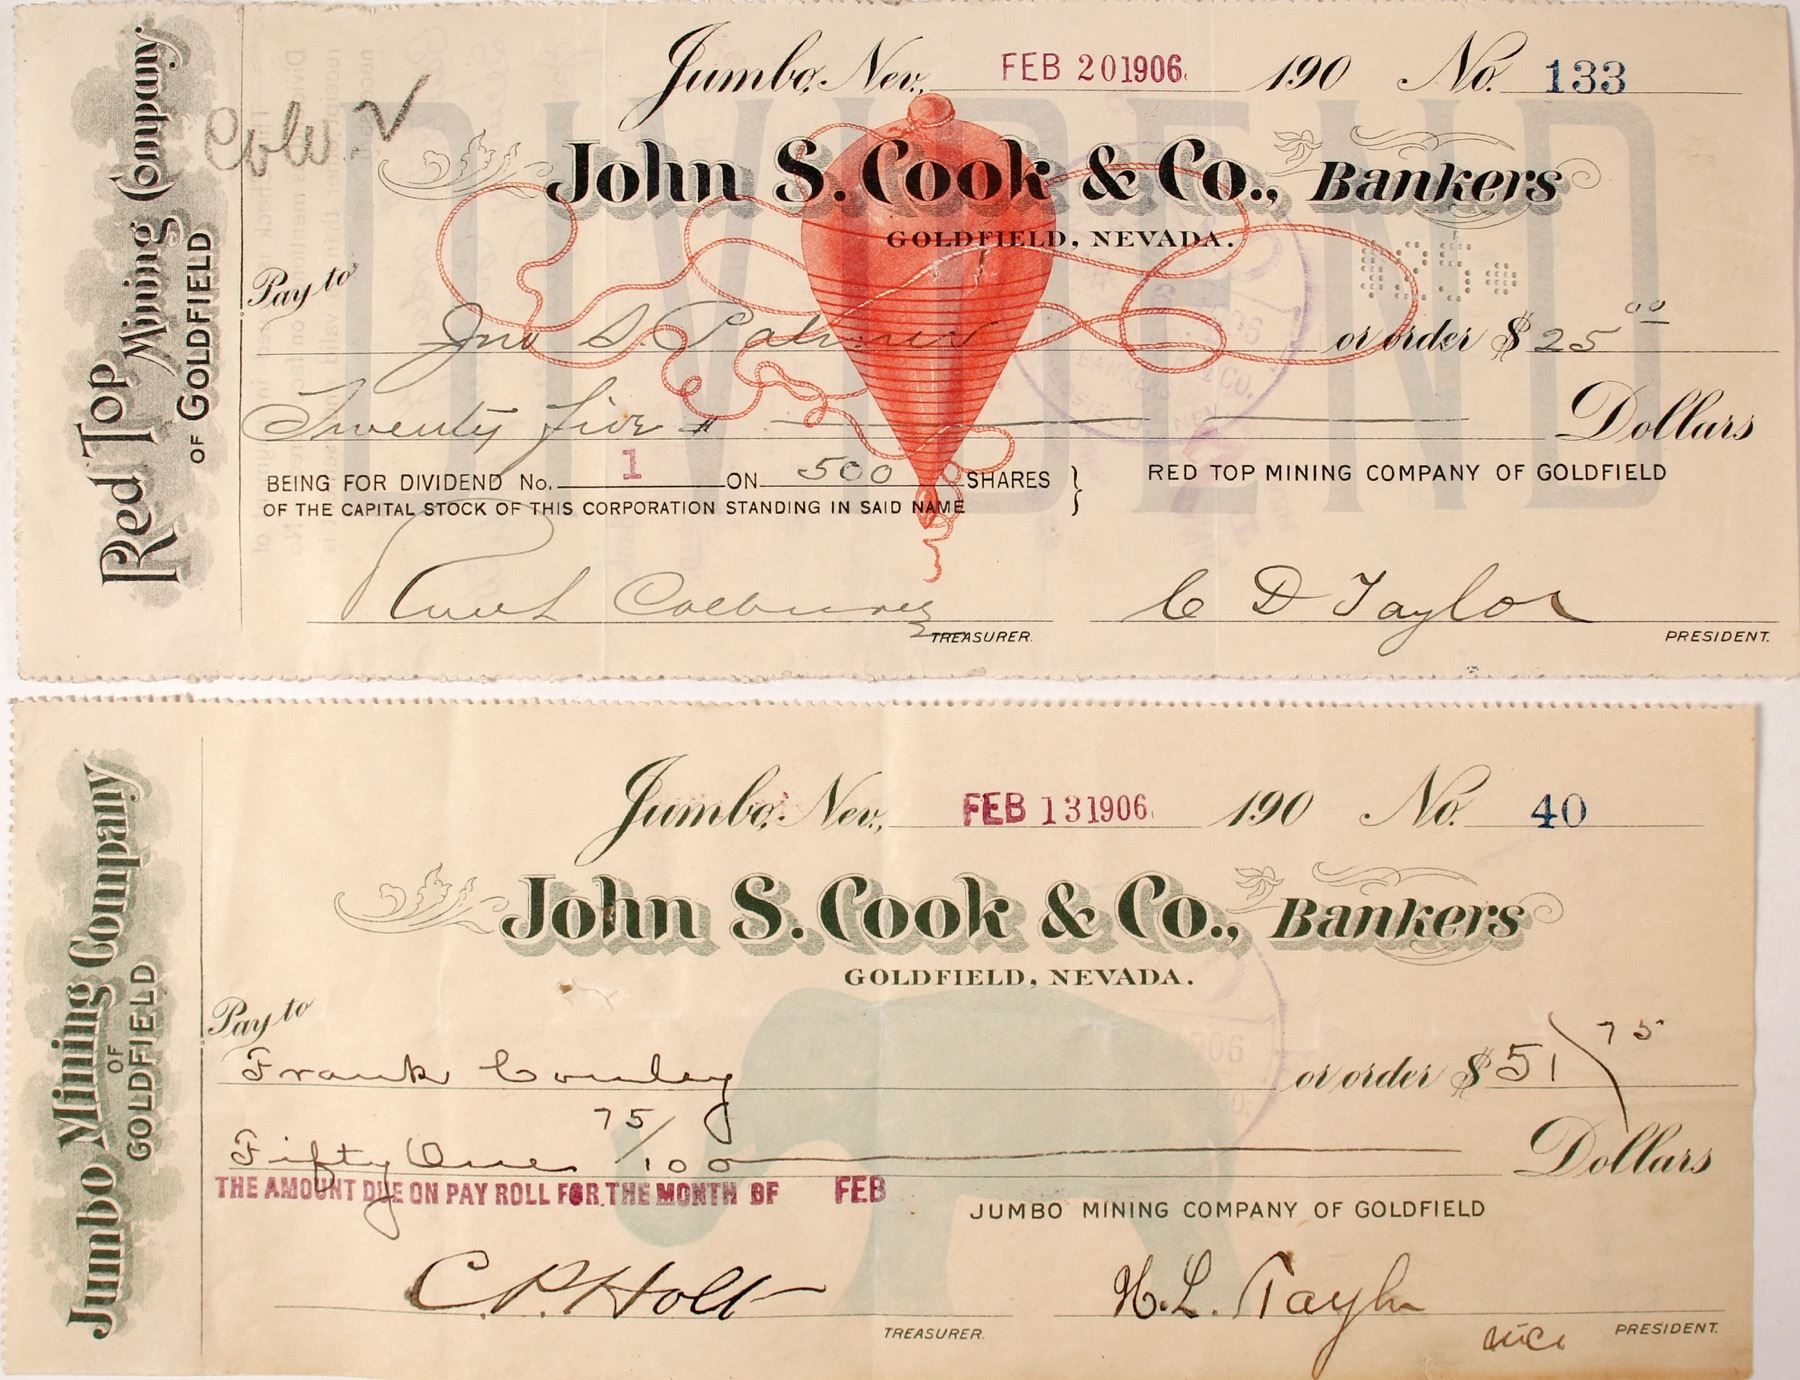 Red Top Mining Company
OF GOLDFIELD
Jumbo, Nev., FEB 20 1906. 190 No. 133
DIVIDEND
John S. Cook & Co., Bankers
GOLDFIELD, NEVADA.
Pay to
Jno S Palmer or order $ 25 00
Twenty five Dollars
BEING FOR DIVIDEND No. 1 ON 500 SHARES } RED TOP MINING COMPANY OF GOLDFIELD
OF THE CAPITAL STOCK OF THIS CORPORATION STANDING IN SAID NAME
C D Taylor
TREASURER. PRESIDENT.
Jumbo Mining Company
OF
GOLDFIELD
Jumbo, Nev., FEB 13 1906. 190 No. 40
John S. Cook & Co., Bankers
GOLDFIELD, NEVADA.
Pay to
Frank Conley or order $ 51 75
Fifty One 75/100 Dollars
THE AMOUNT DUE ON PAY ROLL FOR THE MONTH OF FEB
JUMBO MINING COMPANY OF GOLDFIELD
C. P. Holt H. L. Taylor
TREASURER. PRESIDENT.